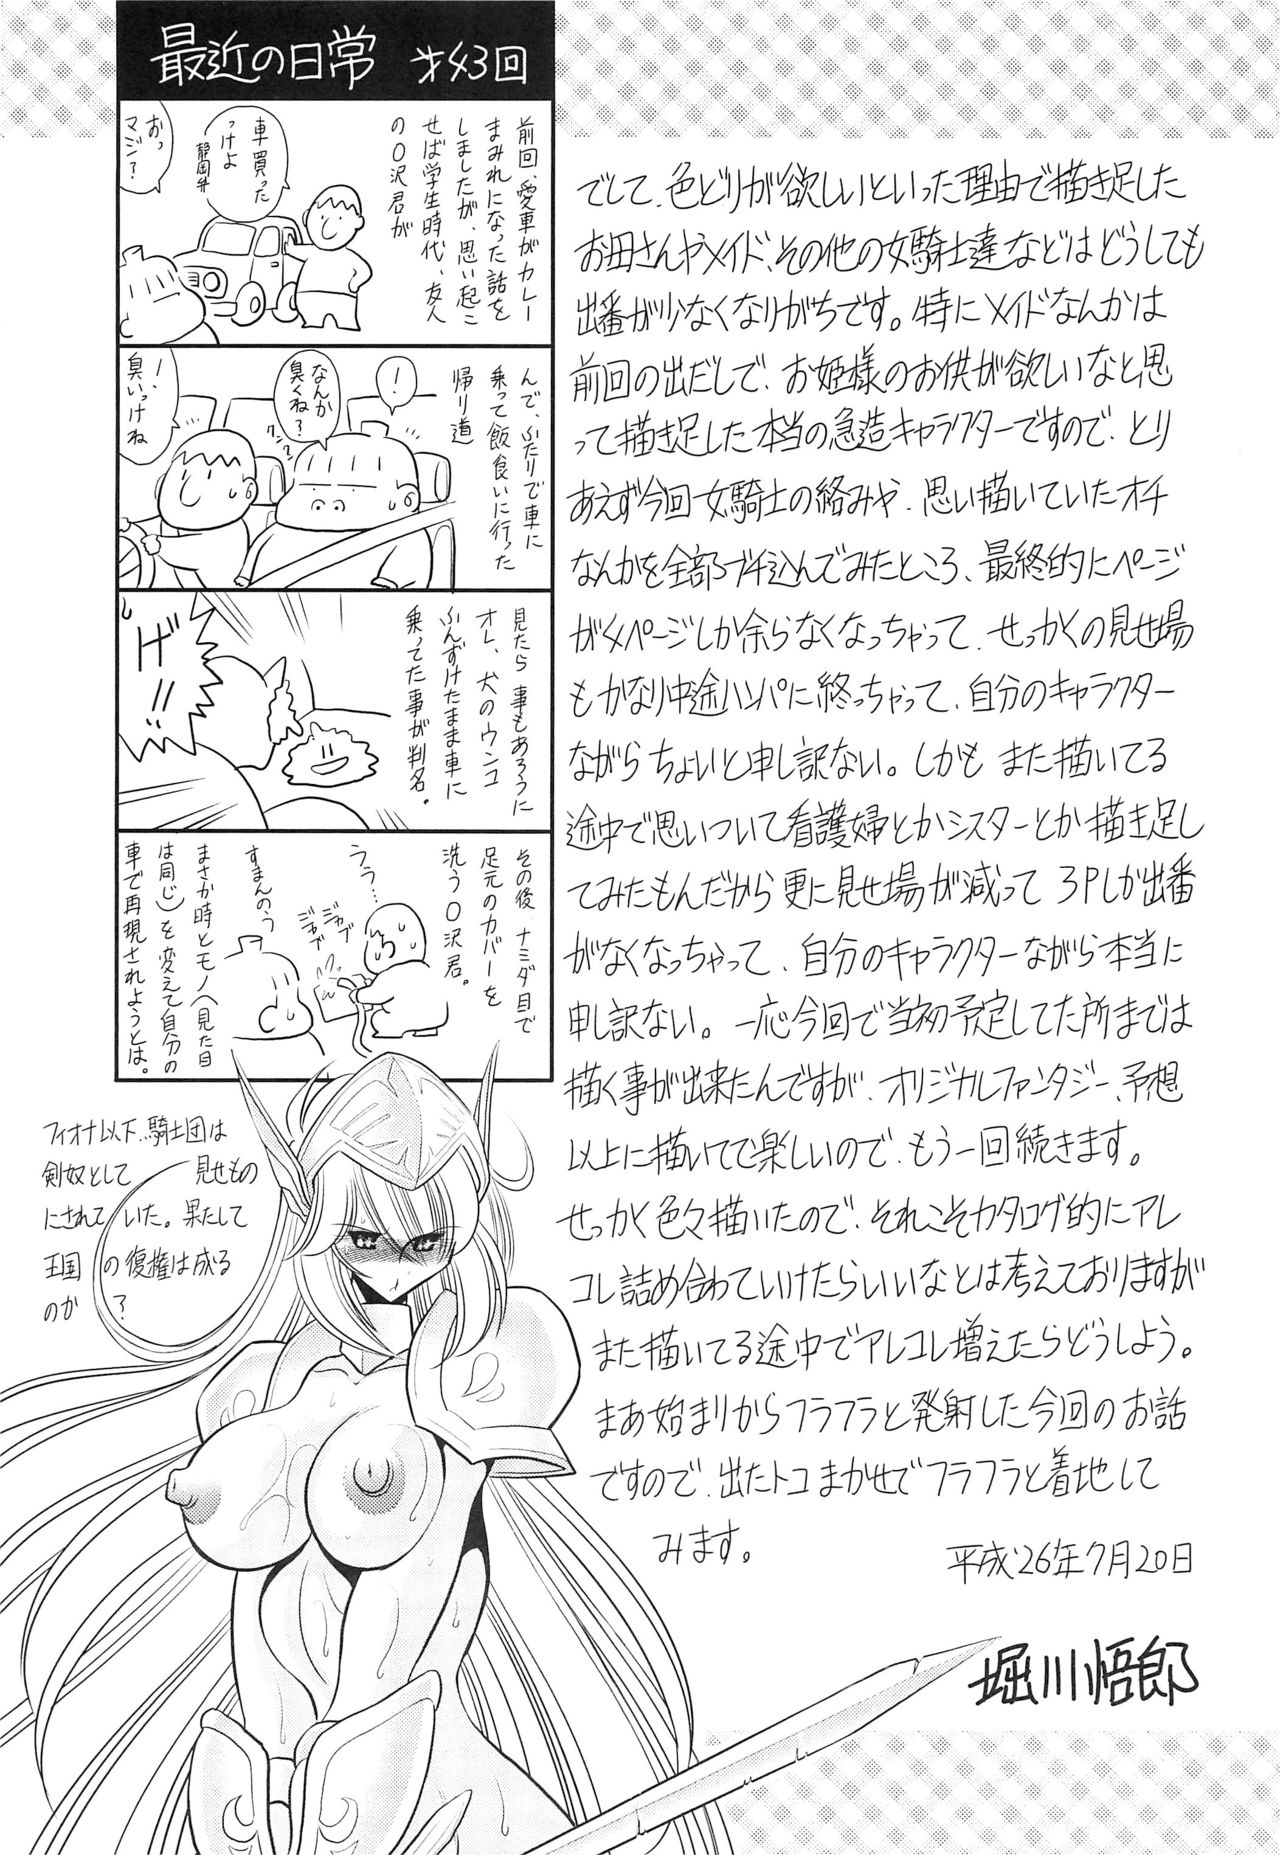 最近の日常 オ43回
前回、愛車がカレー
まみれになった話を
しましたが、思い起こ
せば学生時代、友人
の〇沢君が
車買った
っけよ
静岡弁
おっ
マジ?
んで、ふたりで車に
乗って飯食いに行った
帰り道
!
なんか
臭くね?
クンクン
!、
臭いっけね
見たら 事もあろうに
オレ、犬のウンコ
ふんずけたまま車に
乗ってた事が判名。
げ!!
その後、ナミダ目で
足元のカバーを
洗う〇沢君。
うう…
ジャブ
ジャブ
すまんのう
まさか時とモノ(見た目
は同じ)を変えて自分の
車で再現されようとは。
でして、色どりが欲しいといった理由で描き足した
お母さんやメイド、その他の女騎士達などはどうしても
出番が少なくなりがちです。特にメイドなんかは
前回の出だしで、お姫様のお供が欲しいなと思
って描き足した本当の急造キャラクターですので、とり
あえず今回女騎士の絡みや、思い描いていたオチ
なんかを全部ブチ込んでみたところ、最終的にページ
が4ページしか余らなくなっちゃって、せっかくの見せ場
もかなり中途ハンパに終っちゃって、自分のキャラクター
ながらちょいと申し訳ない。しかも また描いてる
途中で思いついて看護婦とかシスターとか描き足し
てみたもんだから更に見せ場が減って 3Pしか出番
がなくなっちゃって、自分のキャラクターながら本当に
申し訳ない。一応今回で当初予定してた所までは
描く事が出来たんですが、オリジナルファンタジー、予想
以上に描いてて楽しいので、もう一回続きます。
せっかく色々描いたので、それこそカタログ的にアレ
コレ詰め合わせていけたらいいなとは考えておりますが
また描いてる途中でアレコレ増えたらどうしよう。
まあ始まりからフラフラと発射した今回のお話
ですので、出たトコまかせでフラフラと着地して
みます。
平成'26年7月20日
堀川悟郎
フィオナ以下、騎士団は
剣奴として 見せもの
にされていた。果たして
王国の復権は成る
のか?